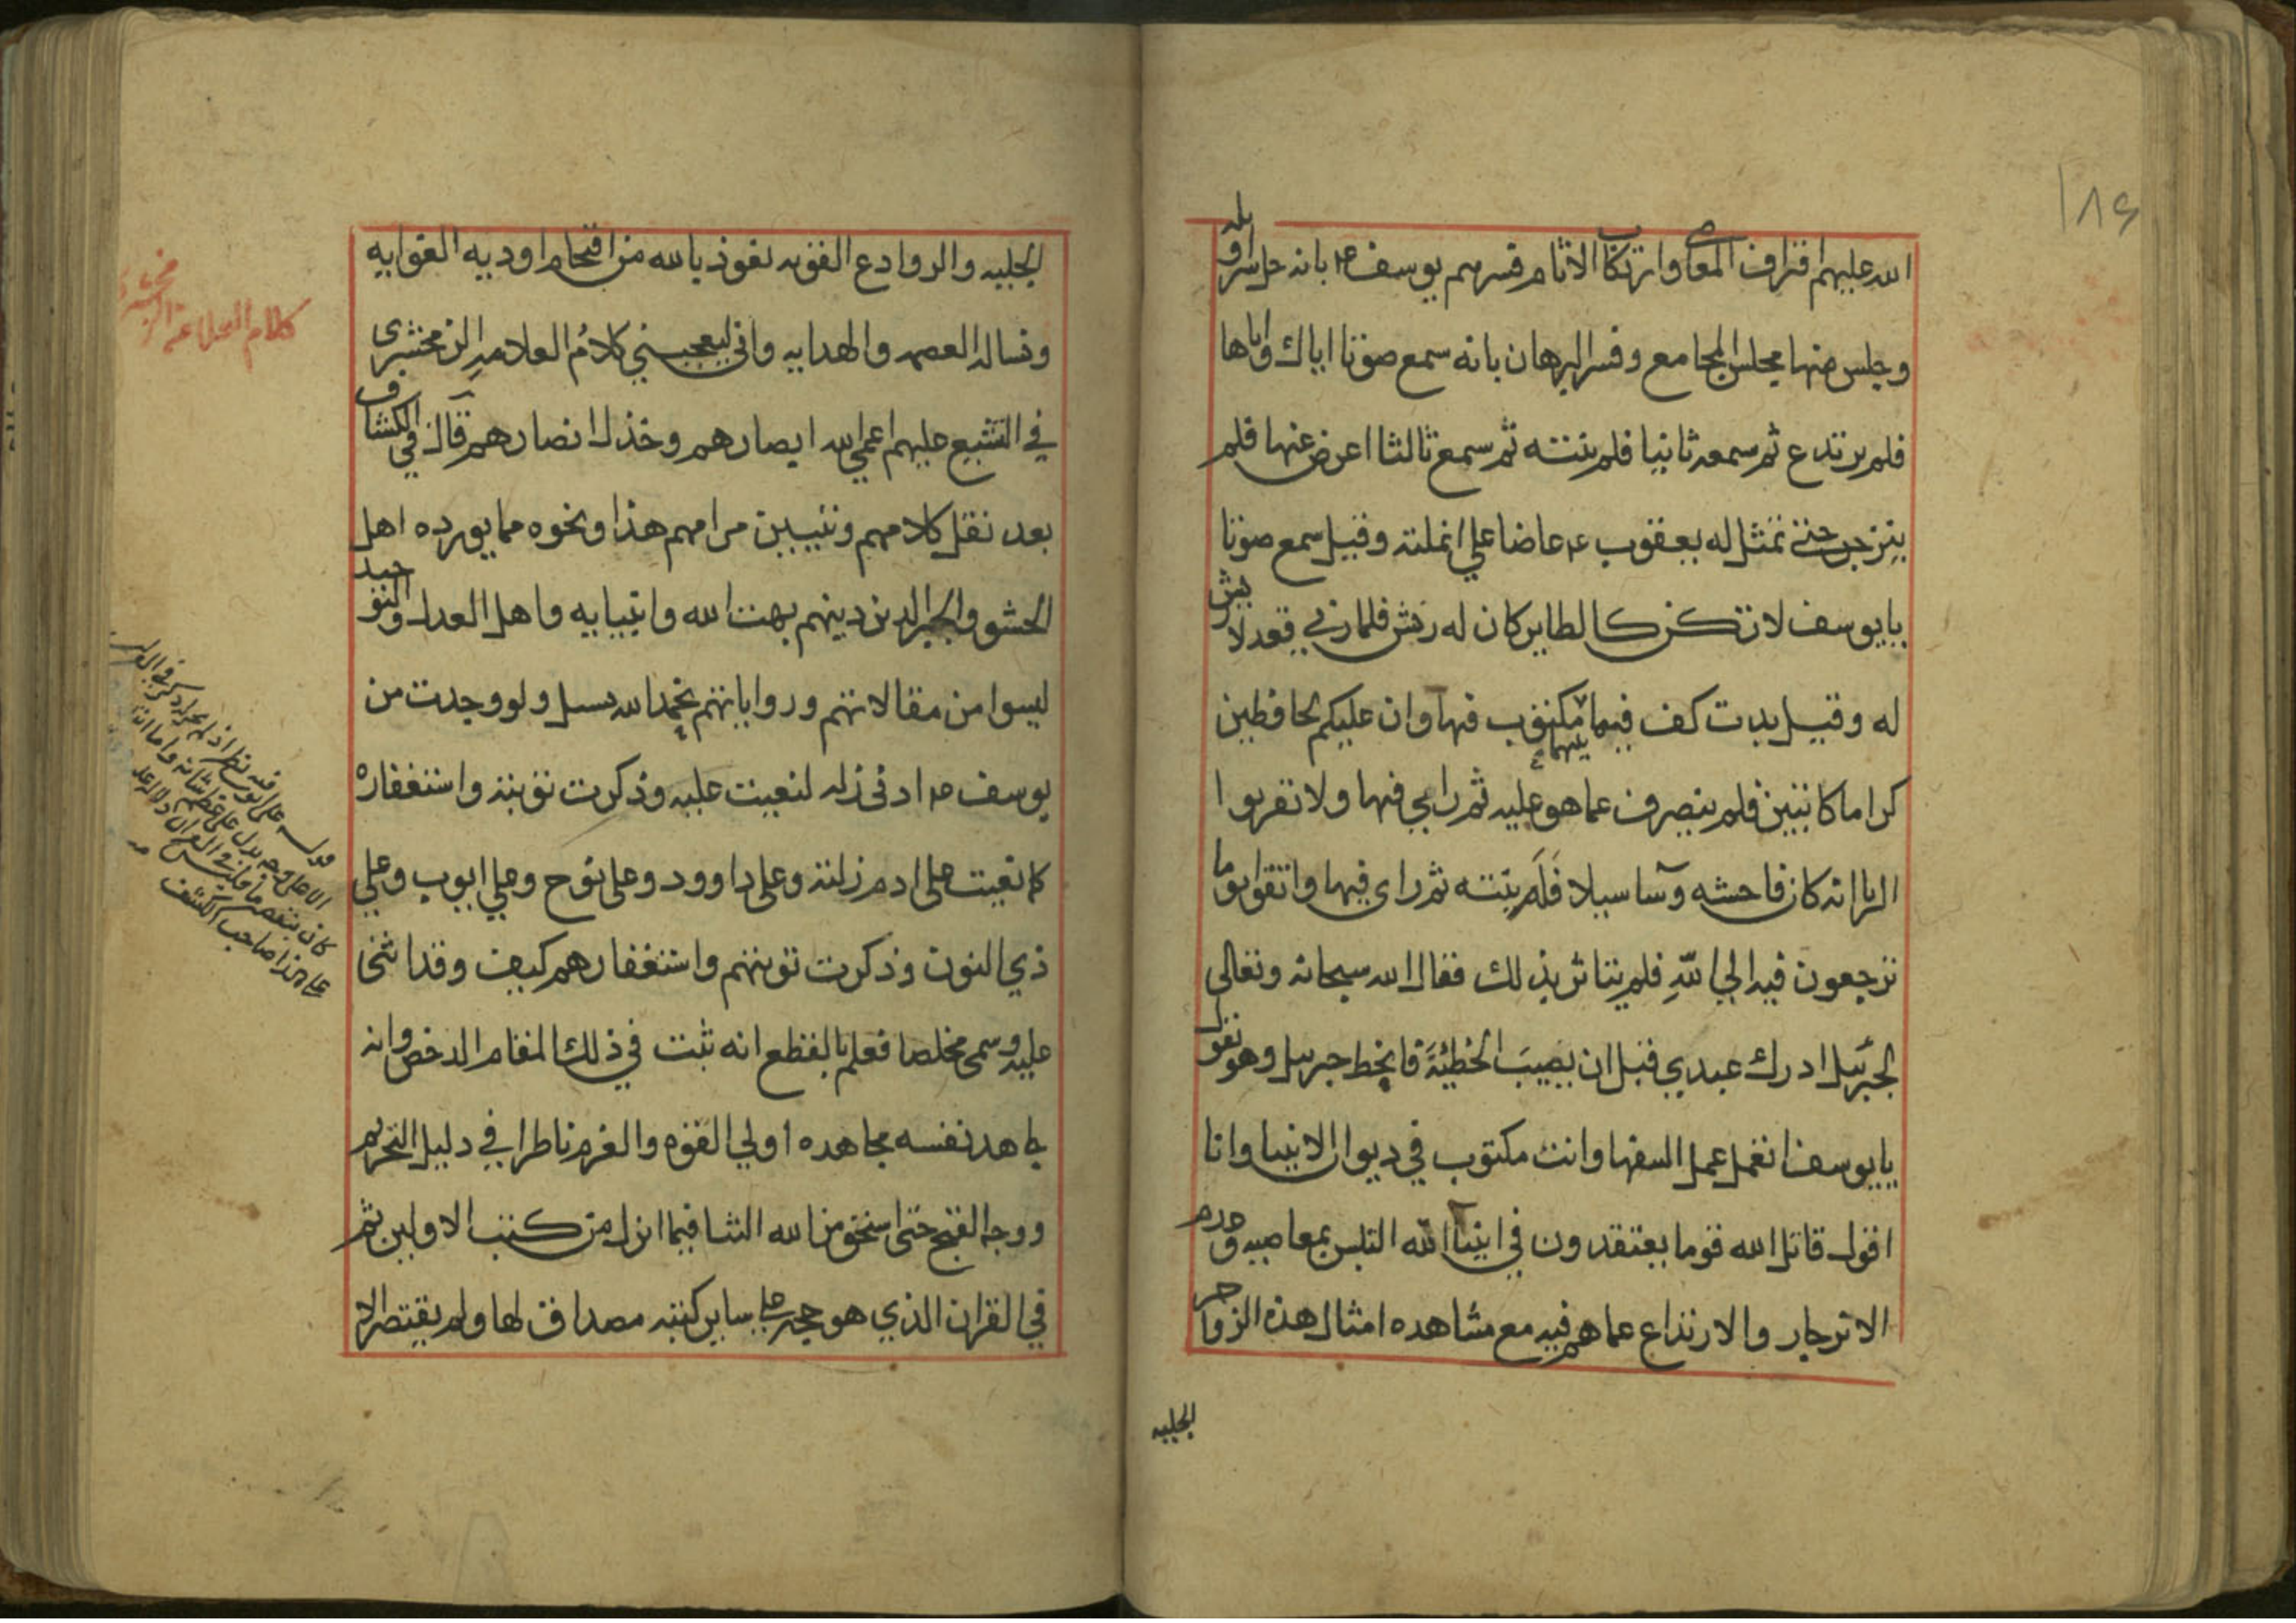 ١٨٤
الله عليهم اقتراف المعاصي وارتكاب الاثام فسرهم يوسف ع م بانه حل سراويله
وجلس منها مجلس المجامع وفسر البرهان بانه سمع صوتا اياك واياها
فلم يرتدع ثم سمعه ثانيا فلم ينته ثم سمع ثالثا اعرض عنها فلم
ينزجر حتى تمثل له يعقوب ع م عاضا على انملته وقيل سمع صوتا
يا يوسف لا تكن كالطاير كان له ريش فلما زنى قعد لا ريش
له وقيل بدت كف فيما بينهما مكتوب فيها وان عليكم لحافظين
كراما كاتبين فلم ينصرف عما هو عليه ثم راى فيها ولا تقربوا
الزنا انه كان فاحشه وسآ سبيلا فلم ينته ثم راى فيها واتقوا يوما
ترجعون فيه الى الله فلم يتاثر بذلك فقال الله سبحانه وتعالى
لجبرئيل ادرك عبدي قبل ان يصيب الخطيئة فانحط جبريل وهو يقول
يا يوسف اتعمل عمل السفها وانت مكتوب في ديوان الانبيا وانا
اقول قاتل الله قوما يعتقدون في انبيآ الله التلبس بمعاصيه وعدم
الانزجار والارتداع عما هم فيه مع مشاهده امثال هذه الزواجر
الجليه
الجليه والروادع القويه نعوذ بالله من اقتحام اوديه الغوايه
ونساله العصمه والهدايه واني ليعجبني كلام العلامه الزمخشرى
في التشنيع عليهم اعمى الله ابصارهم وخذل انصارهم قال في الكشاف
بعد نقل كلامهم وتبيين مرامهم هذا ونحوه مما يورده اهل
الحشو والجبر الذين دينهم بهت الله وانبيايه واهل العدل والتوحيد
ليسوا من مقالاتهم ورواياتهم بحمد الله بسبيل ولو وجدت من
يوسف ع م ادنى زله لنعيت عليه وذكرت توبته واستغفاره
كما نعيت على ادم زلته وعلى داوود وعلى نوح وعلى ايوب وعلى
ذي النون وذكرت توبتهم واستغفارهم كيف وقد اثنى
عليه وسمى مخلصا فعلم بالقطع انه ثبت في ذلك المقام الدحض وانه
جاهد نفسه مجاهده اولي القوه والعزم ناظرا في دليل التحريم
ووجه القبح حتى استحق من الله الثنا فيما انزل من كتب الاولين ثم
في القران الذي هو حجه على ساير كتبه مصداق لها ولم يقتصر الا
كلام العلامة الزمخشرى